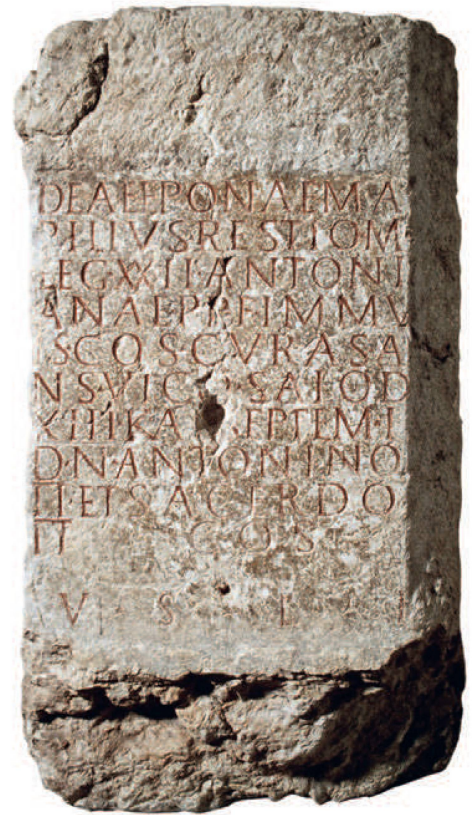 DEAE EPONAE MA
PILIVS RESTIO M
LEG XXII ANTONI
ANAE P P F IMMV
IS COS CVRAS A
NS VICO SALOD
XIIII KA SEPTEM
D·N·ANTONINO
II·ET SACERDO
II COS
V S L